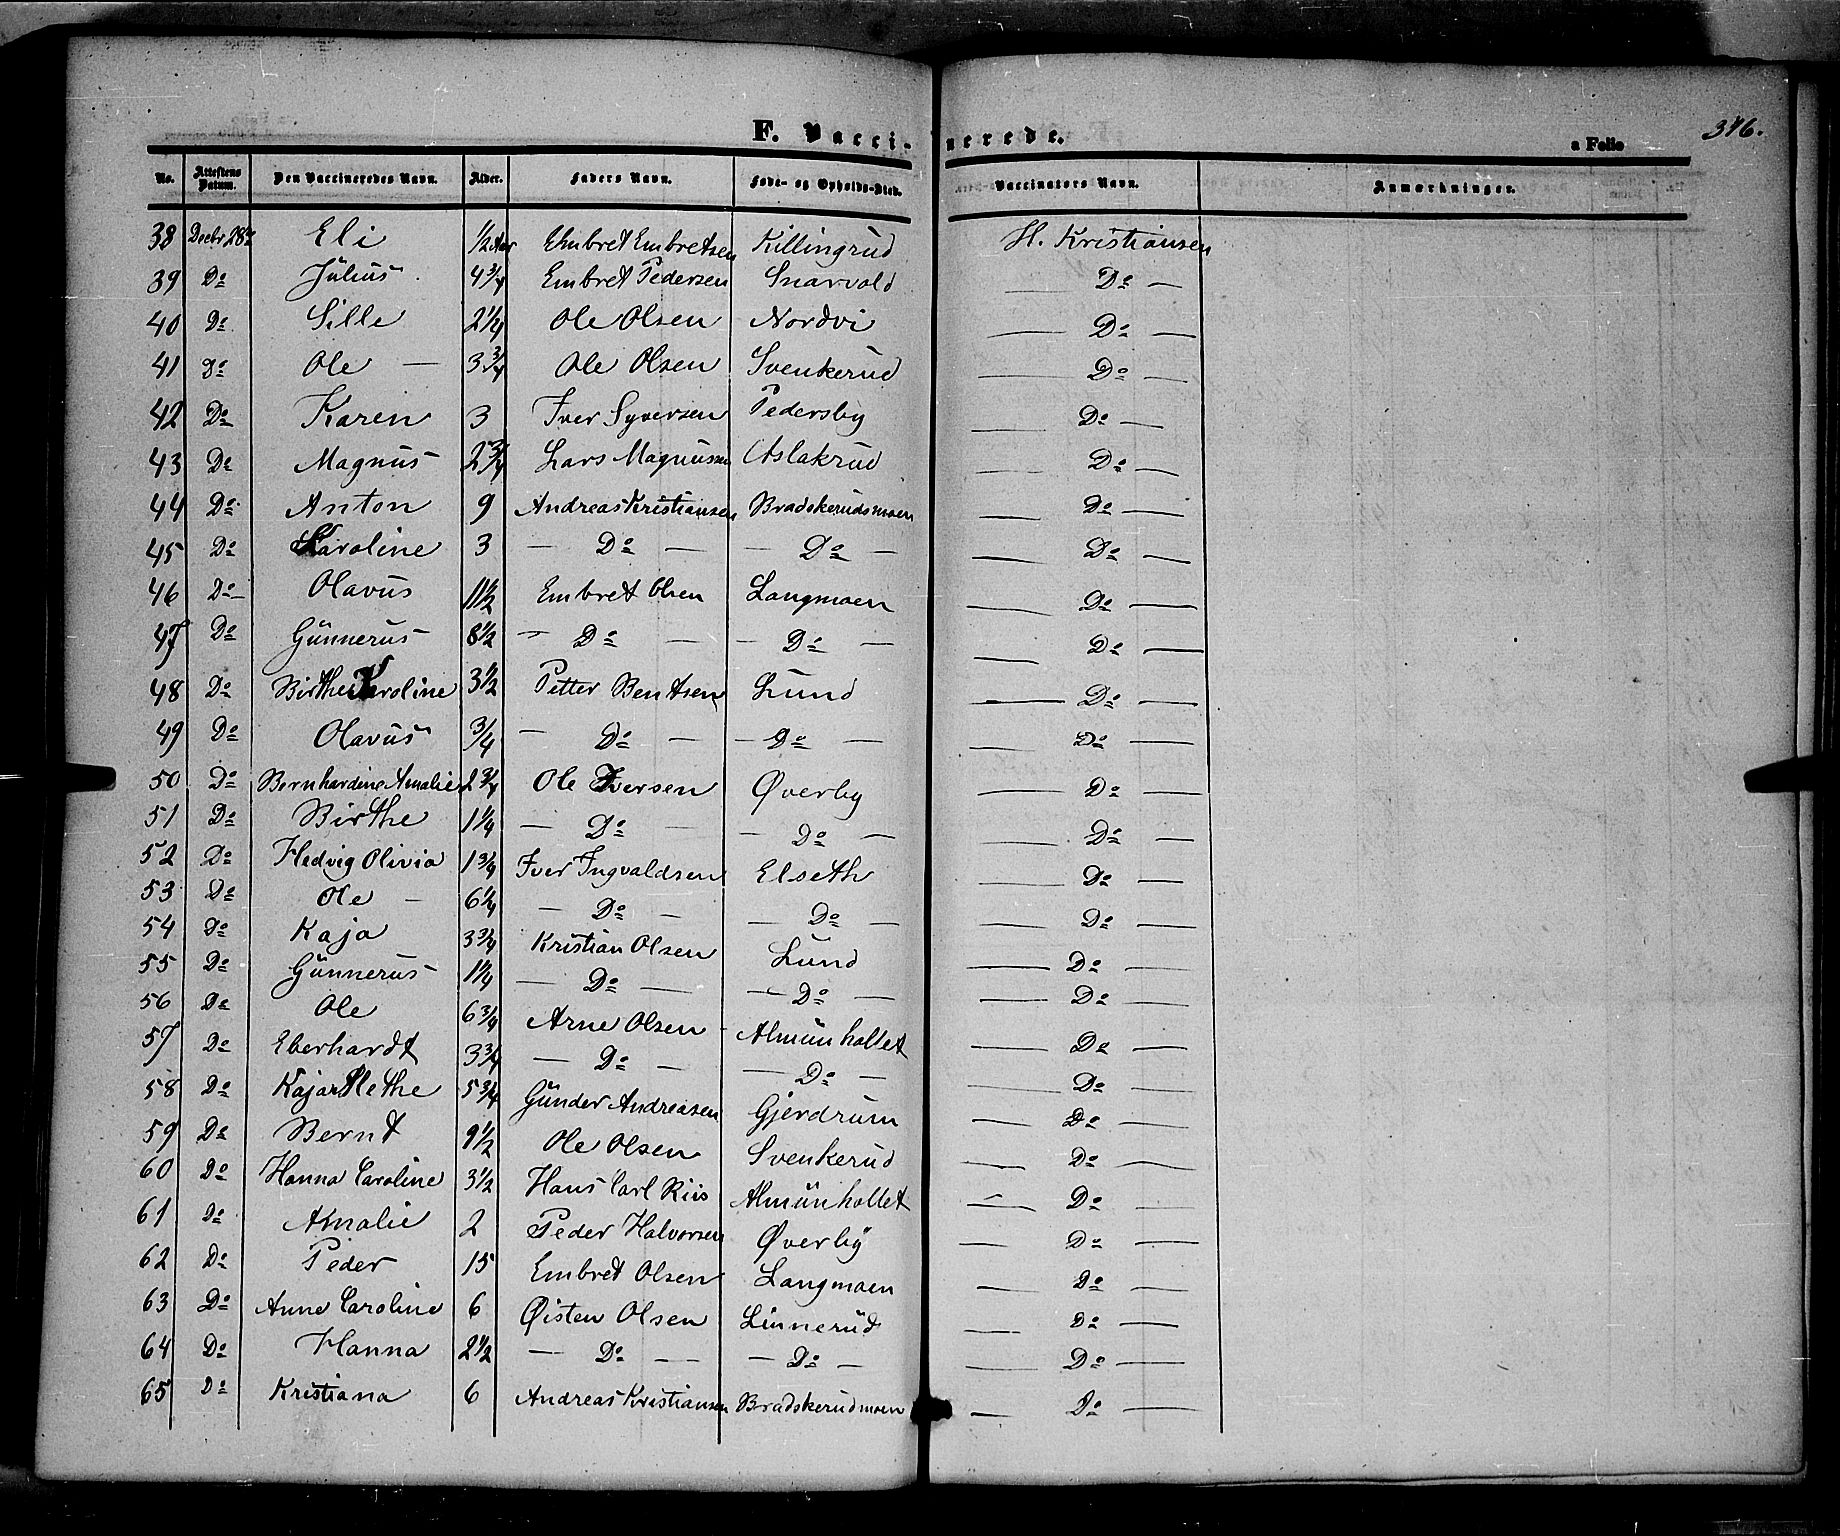 F. Vaccinerede.
a Folio 346.
No. Attestens Datum. Den Vaccineredes Navn. Alder. Faders Navn. Føde- og Opholds-Sted. Vaccinators Navn. Anmærkninger.
38 Decbr. 28de Eli 1/2 Aar Embret Embretsen Killingrud H. Kristiansen
39 Do Julius 4 3/4 Embret Pedersen Snarvold — Do —
40 Do Sille 2 1/4 Ole Olsen Nordvi — Do —
41 Do Ole — 3 3/4 Ole Olsen Svenkerud — Do —
42 Do Karen 3 Iver Syversen Pedersby — Do —
43 Do Magnus 2 3/4 Lars Magnussen Aslakrud — Do —
44 Do Anton 9 Andreas Kristiansen Bradskerudsmoen — Do —
45 Do Karoline 3 — Do — — Do — — Do —
46 Do Olavus 11 1/2 Embret Olsen Langmoen — Do —
47 Do Gunnerus 8 1/2 — Do — — Do — — Do —
48 Do Birthe Karoline 3 1/2 Petter Bentsen Lund — Do —
49 Do Olavus 3/4 — Do — — Do — — Do —
50 Do Bernhardine Amalie 2 3/4 Ole Iversen Øverby — Do —
51 Do Birthe 1 1/4 — Do — — Do — — Do —
52 Do Hedvig Olivia 1 3/4 Iver Ingvaldsen Elseth — Do —
53 Do Ole — 6 1/4 — Do — — Do — — Do —
54 Do Kaja 3 3/4 Kristian Olsen Lund — Do —
55 Do Gunnerus 1 1/4 — Do — — Do — — Do —
56 Do Ole 6 3/4 Arne Olsen Almunkollet — Do —
57 Do Eberhardt 3 3/4 — Do — — Do — — Do —
58 Do Kaja 5 3/4 Gunder Andreasen Gjerdrum — Do —
59 Do Bernt 9 1/2 Ole Olsen Svenkerud — Do —
60 Do Hanna Caroline 3 1/2 Hans Carl Riis Almunkollet — Do —
61 Do Amalie 2 Peder Halvorsen Øverby — Do —
62 Do Peder 15 Embret Olsen Langmoen — Do —
63 Do Anne Caroline 6 Øisten Olsen Linnerud — Do —
64 Do Hanna 2 1/2 — Do — — Do — — Do —
65 Do Kristiana 6 Andreas Kristiansen Bradskerudmoen — Do —